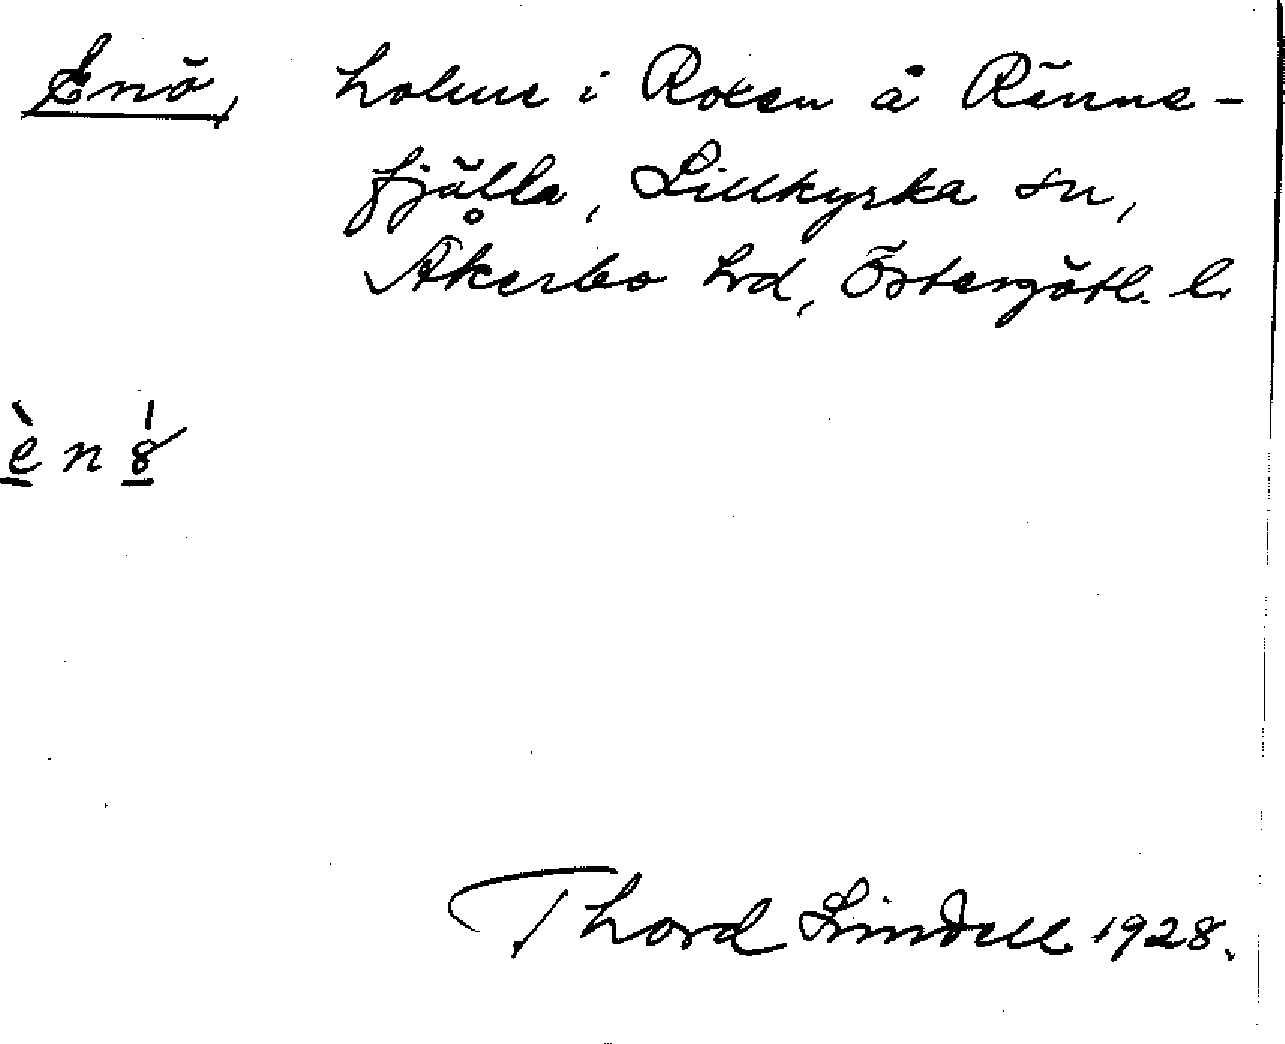 Enö, holme i Roxen å Ränne-
fjälla, Lillkyrka sn,
Åkerbo hd, Östergötl. l.
è n 8̍
Thord Lindell 1928.